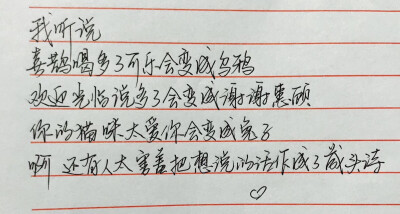 我听说
喜鹊喝多了可乐会变成乌鸦
欢迎光临说多了会变成谢谢惠顾
你的猫咪太爱你会变成兔子
啊 还有人太害羞把想说的话作成了藏头诗